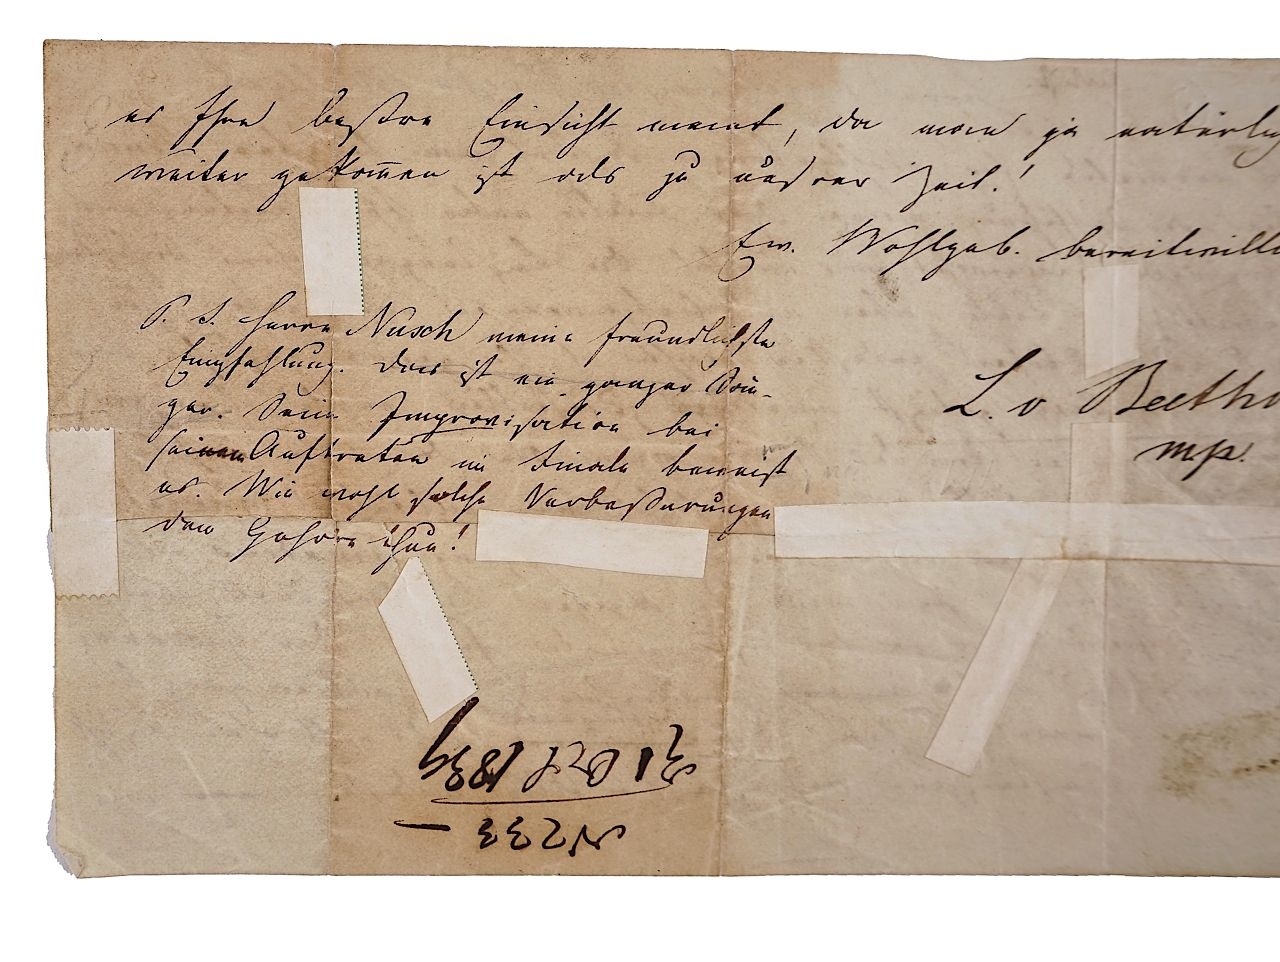 es Ihre beßre Einsicht meint, da man ja natürlich
weiter gekom̅en ist als zu unsrer Zeit!
Ew. Wohlgeb. bereitwill
P. S. Herrn Nusch meine freundlichste
Empfehlung. Das ist ein ganzer Sän-
ger. Seine Improvisation bei
seinem Auftreten im Finale beweist
es. Wie wohl solche Verbeßerungen
den Gehöre thun!
L. v Beetho
mp.
31 Oct 1839
N 233 —